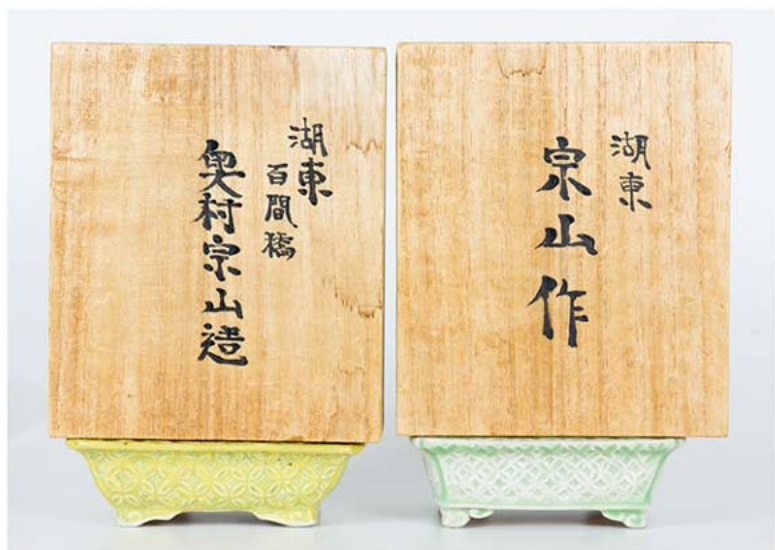 湖東
百間橋
奥村宗山造
湖東
宗山作